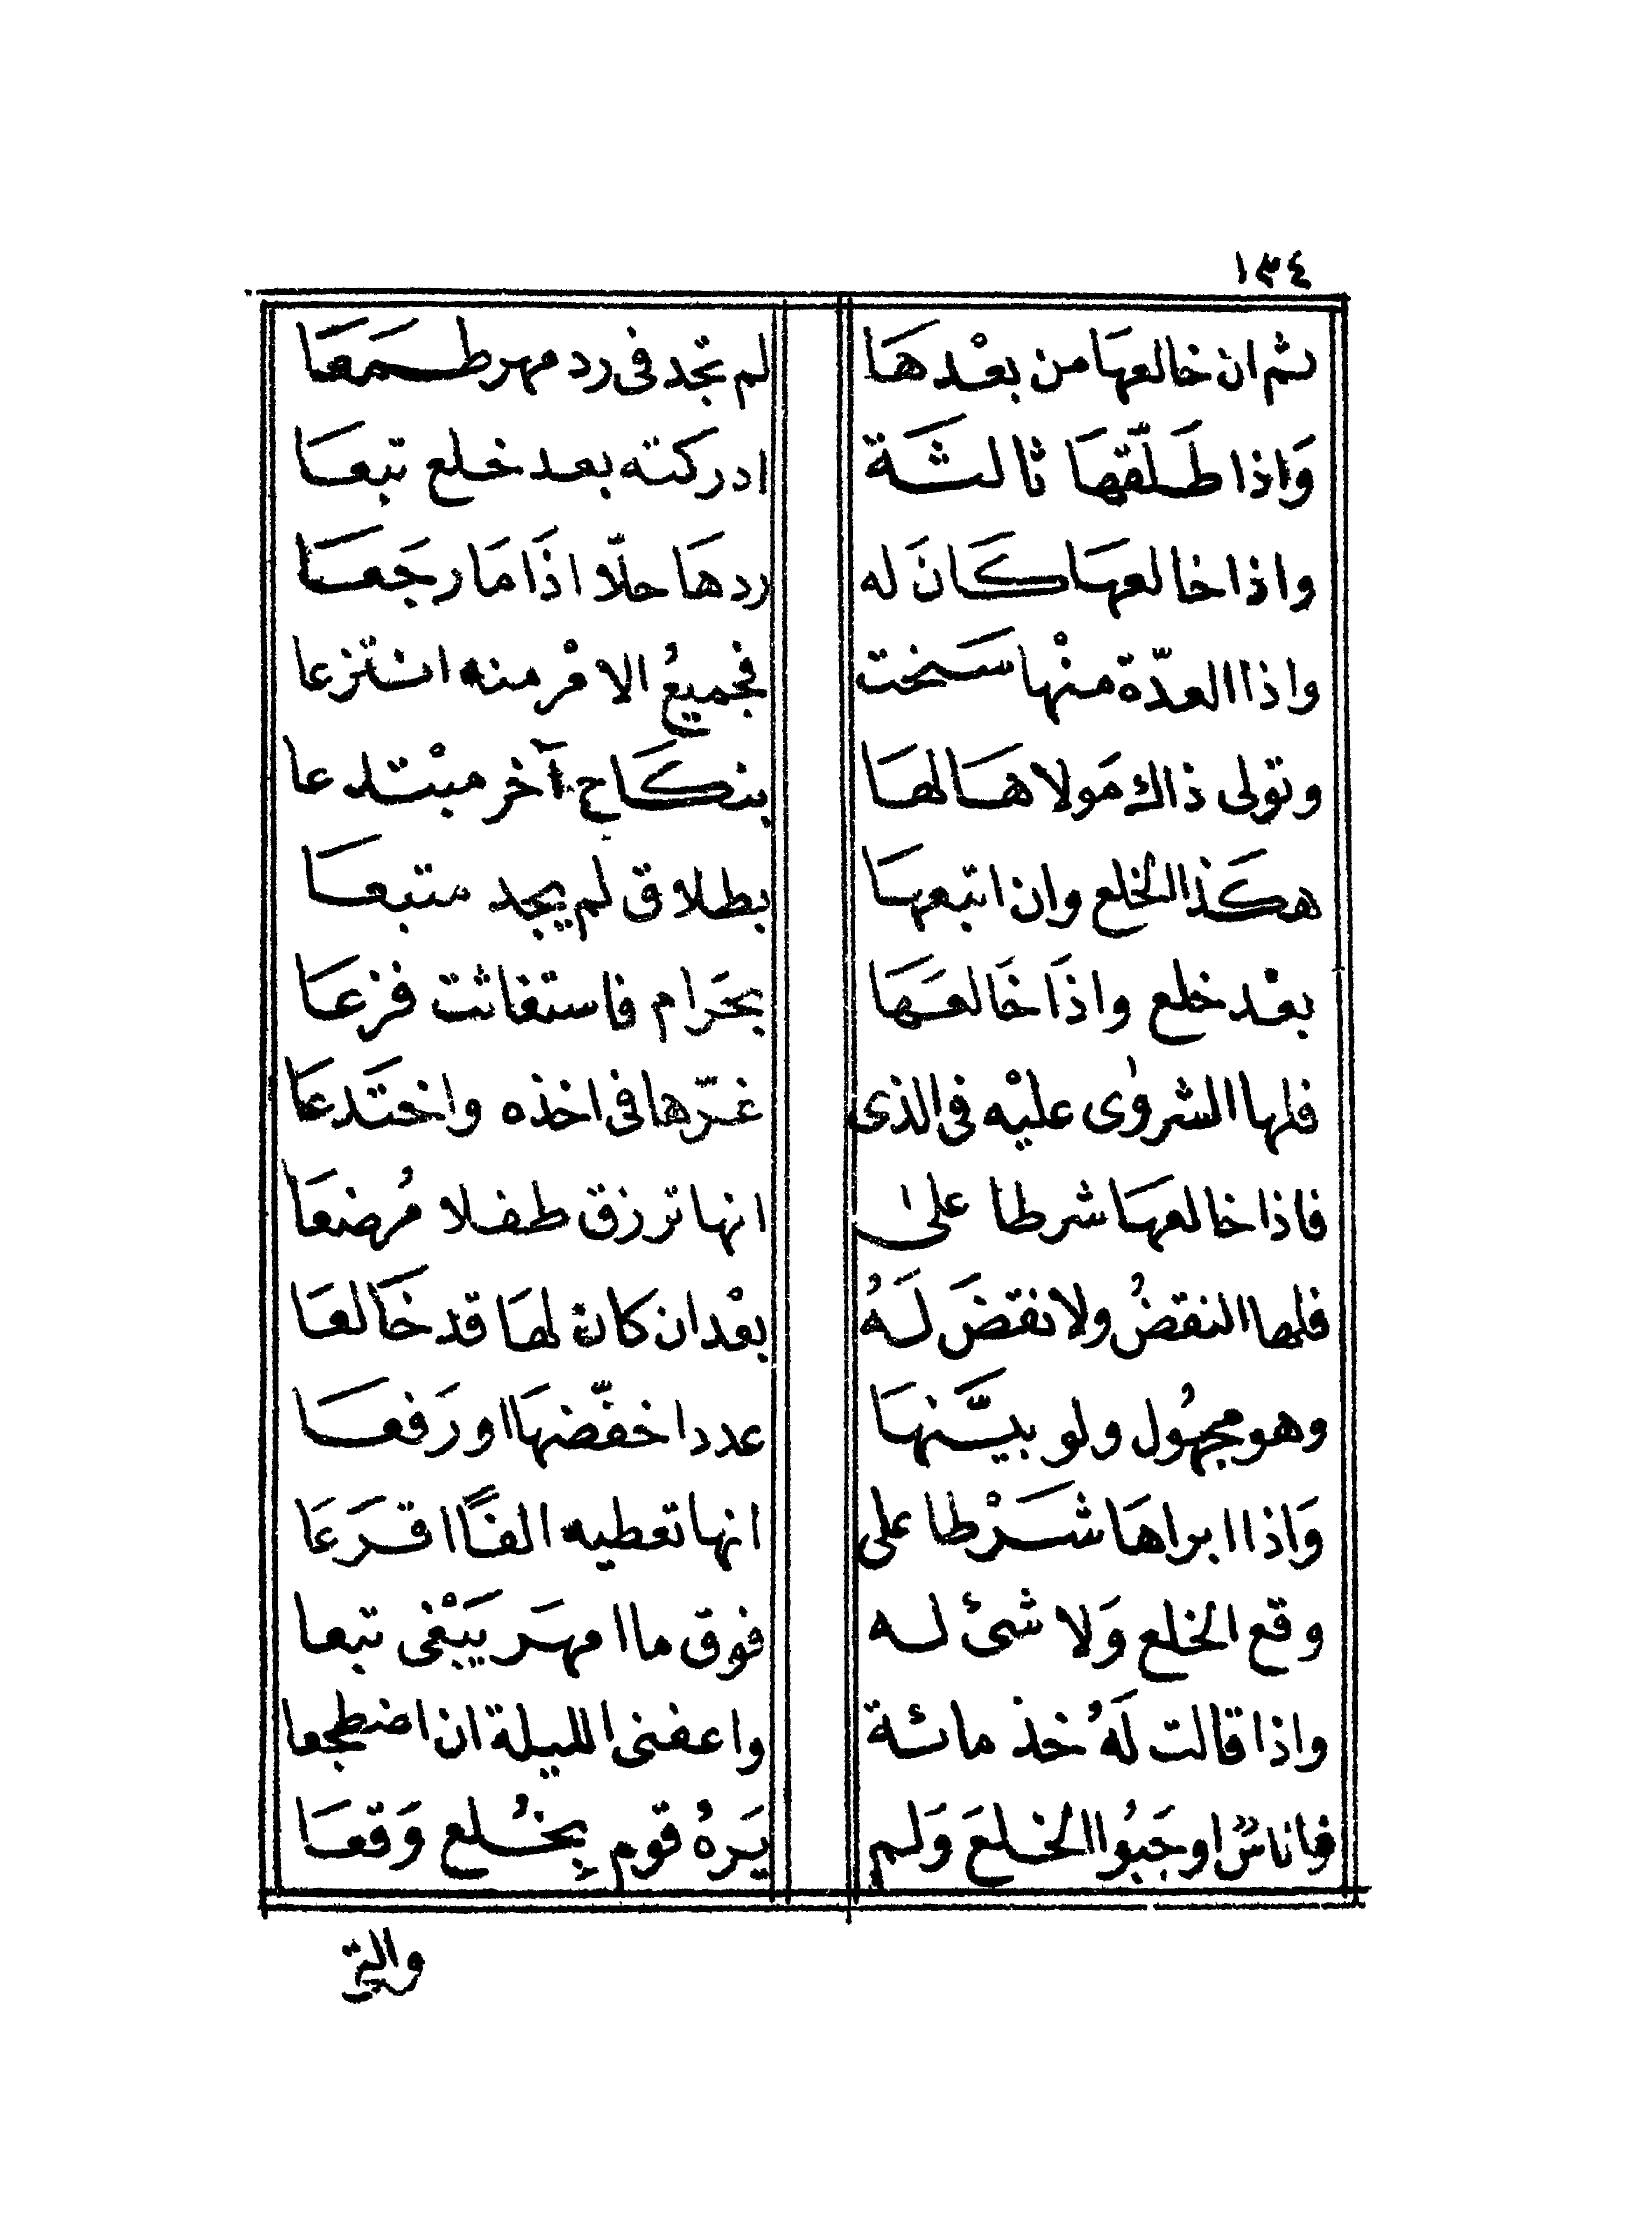 ١٣٤
ثم ان خالعهَا من بعْد هَا لم تجد فى رد مهر طمَعَا
وَاذا طَلّقهَا ثالثَة ادركته بعد خلع تبعَا
واذا خالعهَا كَانَ له رد هَا حلّا اذَا مَا رجَعَا
واذا العدّة منْها سَخت فجميعُ الامْر منه انتزعا
وتولى ذاك مَولاهَا لهَا بنكَاح آخر مبْتدعا
هكَذا الخلع وان اتبعهَا بطلاق لم يجد متبعَا
بعْد خلع واذَا خَالعَهَا بحَرام فاستغاثت فزعَا
فلها الشروٰى عليْه فى الذى غرّها فى اخذه واختَدعَا
فاذا خالعهَا شرطا علىٰ انها ترزق طفلا مُرضعَا
فلها النقضُ ولا نقضَ لَهُ بعْد ان كانت لهَا قد خَالعَا
وهو مجهُول ولو بيَّنهَا عددا خفّضهَا او رَفعَا
وَاذا ابراهَا شَرْطا على انها تعطيه الفًا اقرَعَا
وقع الخلع وَلا شئ له فوق ما امهَر يَبْغى تبعا
واذا قالت لَهُ خذ مائة واعفنى الليلة ان اضطجعا
فاناسٌ اوجَبُوا الخلعَ وَلم يَرهُ قوم بِخُلع وَقعَا
والتى